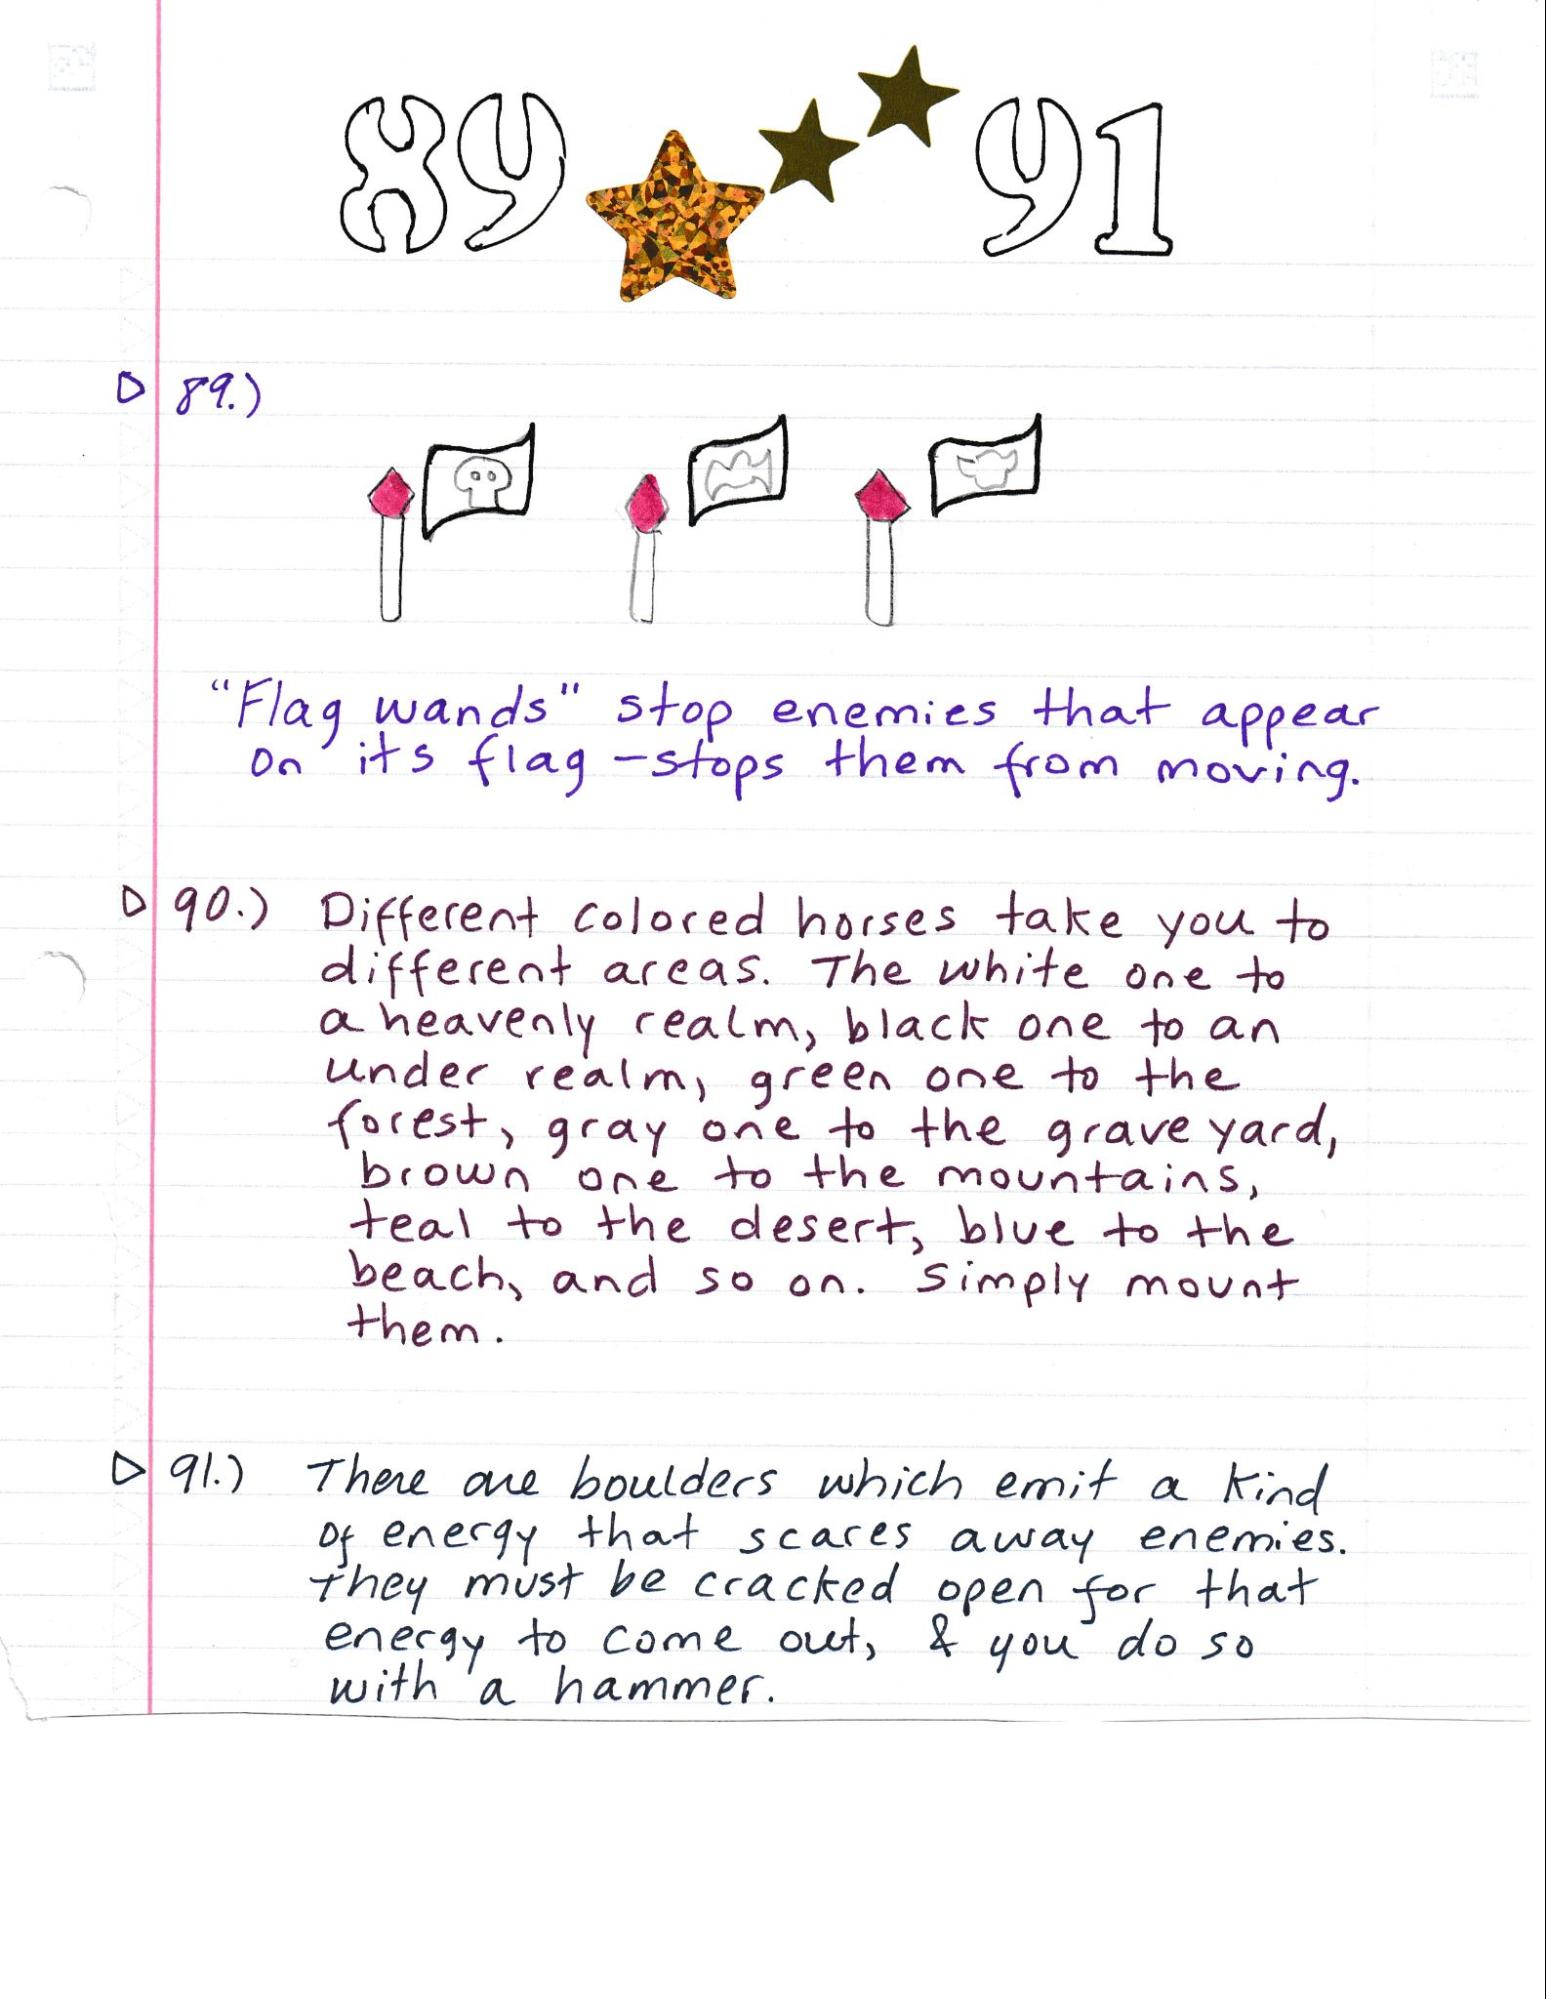 89 91
89.)
"Flag wands" stop enemies that appear
on its flag - stops them from moving.
90.) Different colored horses take you to
different areas. The white one to
a heavenly realm, black one to an
under realm, green one to the
forest, gray one to the grave yard,
brown one to the mountains,
teal to the desert, blue to the
beach, and so on. Simply mount
them.
91.) There are boulders which emit a kind
of energy that scares away enemies.
They must be cracked open for that
energy to come out, & you do so
with a hammer.